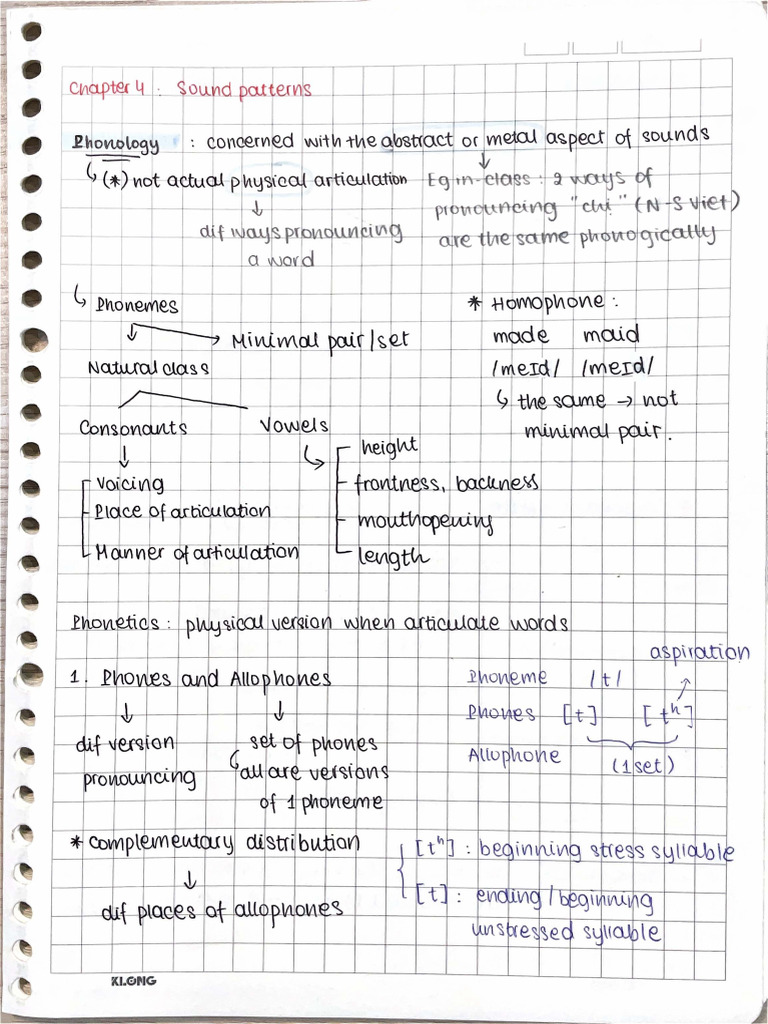 Chapter 4 : Sound patterns
Phonology : concerned with the abstract or metal aspect of sounds
(*) not actual physical articulation
Eg in-class : 2 ways of
pronouncing "chị" (N-S Viet)
are the same phonogically
dif ways pronouncing
a word
Phonemes
Minimal pair/set
Natural class
Consonants
Vowels
Voicing
Place of articulation
Manner of articulation
height
frontness, backness
mouthopening
length
* Homophone :
made maid
/meId/ /meId/
the same → not
minimal pair.
Phonetics : physical version when articulate words
1. Phones and Allophones
dif version
pronouncing
set of phones
all are versions
of 1 phoneme
aspiration
Phoneme /t/
Phones [t] [tʰ]
Allophone (1 set)
* complementary distribution
dif places of allophones
[tʰ] : beginning stress syllable
[t] : ending / beginning
unstressed syllable
KLONG